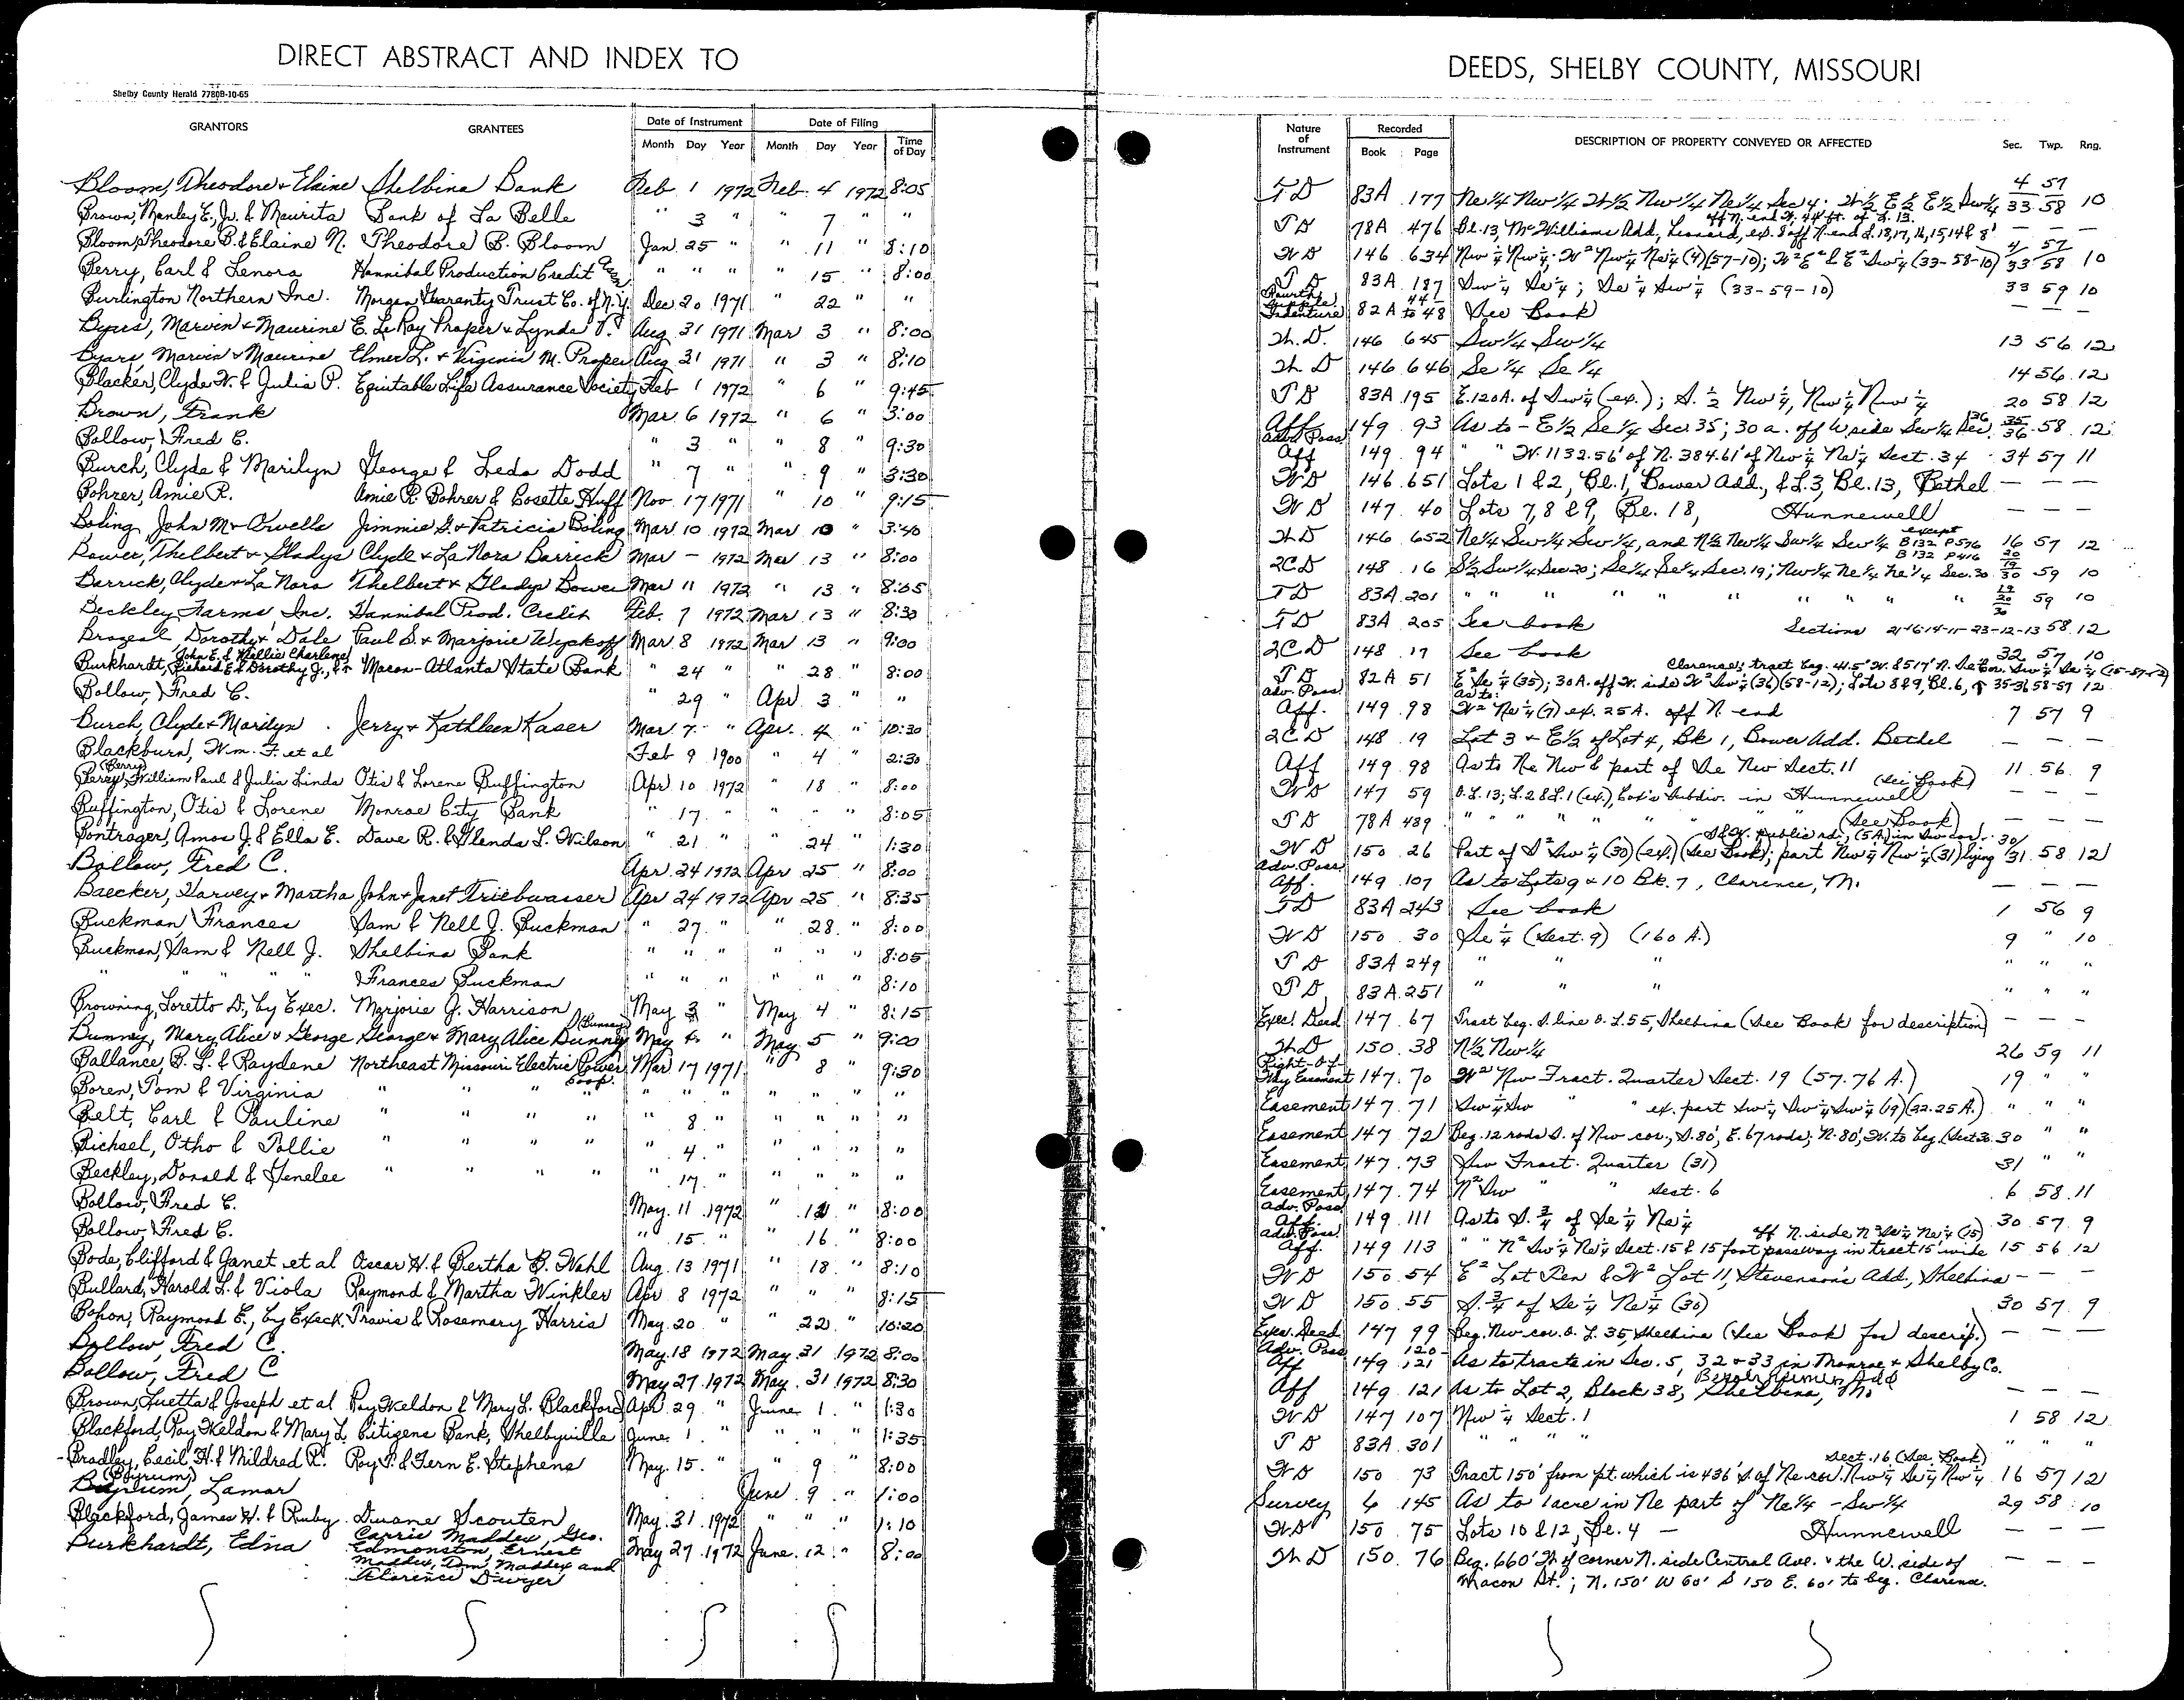 DIRECT ABSTRACT AND INDEX TO
Shelby County Herald 7780B-10-65
GRANTORS GRANTEES Date of Instrument Date of Filing
Month Day Year Month Day Year Time of Day
Bloom, Theodore & Elaine Shelbina Bank Feb 1 1972 Feb. 4 1972 8:05
Brown, Manley E., Jr. & Maurita Bank of La Belle " 3 " " 7 " "
Bloom, Theodore B. & Elaine N. Theodore B. Bloom Jan. 25 " " 11 " 8:10
Berry, Carl & Lenora Hannibal Production Credit " " " " 15 " 8:00
Burlington Northern Inc. Morgan Guaranty Trust Co. of N.Y. Dec 20 1971 " 22 " "
Byars, Marvin & Maurine E. LeRoy Proper & Lynda Aug. 31 1971 Mar 3 " 8:00
Byars, Marvin & Maurine Elmer L. & Virginia M. Proper Aug 31 1971 " 3 " 8:10
Blacker, Clyde W. & Julia P. Equitable Life Assurance Society Feb 1 1972 " 6 " 9:45
Brown, Frank Mar. 6 1972 " 6 " 3:00
Bollow, Fred C. " 3 " " 8 " 9:30
Burch, Clyde & Marilyn George & Leda Dodd " 7 " " 9 " 3:30
Bohrer, Amie R. Amie R. Bohrer & Cosette Huff Nov. 17 1971 " 10 " 9:15
Boling, John M & Orvella Jimmie G. & Patricia Boling Mar 10 1972 Mar 10 " 3:40
Bower, Thelbert & Gladys Clyde & La Nora Barrick Mar — 1972 Mar 13 " 8:00
Barrick, Clyde & La Nora Thelbert & Gladys Bower Mar 11 1972 " 13 " 8:05
Beckley Farms, Inc. Hannibal Prod. Credit Feb. 7 1972 Mar 13 " 8:30
Brazeal Dorothy & Dale Paul S. & Marjorie Wyckoff Mar. 8 1972 Mar 13 " 9:00
John E. & Nellie Charlene
Burkhardt, Richard E. & Dorothy J., & Macon-Atlanta State Bank " 24 " " 28 " 8:00
Bollow, Fred C. " 29 " Apr. 3 " "
Burch, Clyde & Marilyn Jerry & Kathleen Kaser Mar. 7 " Apr. 4 " 10:30
Blackburn, Wm. F. et al Feb 9 1900 " 4 " 2:30
(Berry)
Perry, William Paul & Julia Linda Otis & Lorene Buffington Apr. 10 1972 " 18 " 8:00
Buffington, Otis & Lorene Monroe City Bank " 17 " " " " 8:05
Bontrager, Amos J. & Ella E. Dave R. & Glenda L. Wilson " 21 " " 24 " 1:30
Bollow, Fred C. Apr. 24 1972 Apr 25 " 8:00
Baecker, Harvey & Martha John & Janet Triebwasser Apr 24 1972 Apr 25 " 8:35
Buckman, Frances Sam & Nell J. Buckman " 27 " " 28 " 8:00
Buckman, Sam & Nell J. Shelbina Bank " " " " " " 8:05
" " " " Frances Buckman " " " " " " 8:10
Browning, Loretto D., by Exec. Marjorie J. Harrison May 3 " May 4 " 8:15
Bunney, Mary Alice & George George & Mary Alice Bunney (Bunney) May 4 " May 5 " 9:00
Ballance, B. L. & Raydene Northeast Missouri Electric Power Coop. Mar 17 1971 " 8 " 9:30
Boren, Tom & Virginia " " " " " " " " " " "
Belt, Carl & Pauline " " " " " 8 " " " " "
Bichsel, Otho & Pollie " " " " " 4 " " " " "
Beckley, Donald & Jenelee " " " " " 17 " " " " "
Bollow, Fred C. May 11 1972 " 12 " 8:00
Bollow, Fred C. " 15 " " 16 " 8:00
Bode, Clifford & Janet et al Oscar H. & Bertha B. Wahl Aug. 13 1971 " 18 " 8:10
Bullard, Harold L. & Viola Raymond & Martha Winkler Apr 8 1972 " " " 8:15
Bohon, Raymond E., by Exec. Travis & Rosemary Harris May 20 " " 22 " 10:20
Bollow, Fred C. May 18 1972 May 31 1972 8:00
Bollow, Fred C May 27 1972 May 31 1972 8:30
Brown, Luetta & Joseph et al Roy Weldon & Mary L. Blackford Apr. 29 " June 1 " 1:30
Blackford, Roy Weldon & Mary L. Citizens Bank, Shelbyville June 1 " " " " 1:35
Bradley, Cecil H. & Mildred R. Roy T. & Fern E. Stephens May 15 " " 9 " 8:00
(Byrum)
Byrum, Lamar June 9 " 1:00
Blackford, James H. & Ruby Duane Scouten May 31 1972 " " " 1:10
Burkhardt, Edna Carrie Maddex, Geo. Edmonston, Ernest Maddex, Tom Maddex and Clarence Dwyer May 27 1972 June 12 " 8:00
DEEDS, SHELBY COUNTY, MISSOURI
Nature of Instrument Recorded Book Page DESCRIPTION OF PROPERTY CONVEYED OR AFFECTED Sec. Twp. Rng.
TD 83A 177 Ne1/4 Nw1/4 W1/2 Nw1/4 Ne1/4 Sec 4. W1/2 E1/2 E1/2 Sw1/4 4 33 57 58 10
off N. end W. 44 ft. of L. 13.
TD 78A 476 Bl. 13, McWilliams Add, Leonard, ex. 8' off N. end L. 18, 17, 16, 15, 14 & 8' — — —
WD 146 634 Nw 1/4 Nw 1/4; W² Nw 1/4 Ne 1/4 (4)(57-10); W² E² & E² Sw 1/4 (33-58-10) 4/33 57/58 10
TD 83A 187 Sw 1/4 Se 1/4; Se 1/4 Sw 1/4 (33-59-10) 33 59 10
Fourth Supple. Indenture 82A 44 to 48 See Book — — —
W. D. 146 645 Sw 1/4 Sw 1/4 13 56 12
W. D 146 646 Se 1/4 Se 1/4 14 56 12
TD 83A 195 E. 120 A. of Sw 1/4 (ex.); S. 1/2 Nw 1/4, Nw 1/4 Nw 1/4 20 58 12
Aff. 149 93 As to - E 1/2 Se 1/4 Sec. 35; 30 a. off W side Sw 1/4 Sec. 36 35 36 58 12
Adv. Poss. Aff 149 94 " " W. 1132.56' of N. 384.61' of Nw 1/4 Ne 1/4 Sect. 34 34 57 11
WD 146 651 Lots 1 & 2, Bl. 1, Bower Add., & L. 3, Bl. 13, Bethel — — —
WD 147 40 Lots 7, 8 & 9, Bl. 18, Hunnewell — — —
WD 146 652 Ne 1/4 Sw 1/4 Sw 1/4, and N 1/2 Nw 1/4 Sw 1/4 Sw 1/4 except B 132 P 576 B 132 P 416 16 57 12
2CD 148 16 S 1/2 Sw 1/4 Sec. 20; Se 1/4 Se 1/4 Sec. 19; Nw 1/4 Ne 1/4 Ne 1/4 Sec. 30 20 19 30 59 10
TD 83A 201 " " " " " " " " " 19 20 30 59 10
TD 83A 205 See book Sections 21-16-14-11-23-12-13 58 12
2CD 148 17 See book 32 57 10
Clarence; tract beg. 41.5' W. & 517' N. Se Cor. Sw 1/4 Se 1/4 (15-57-12)
TD 82A 51 E² Se 1/4 (35); 30 A. off W. side W² Sw 1/4 (36)(58-12); Lots 8 & 9, Bl. 6, 35-36 58-57 12
Adv. Poss. Aff. 149 98 As to: W² Ne 1/4 (7) ex. 25 A. off N. end 7 57 9
2CD 148 19 Lot 3 & E 1/2 of Lot 4, Bk 1, Bower Add. Bethel — — —
Aff 149 98 As to Ne Nw & part of Se Nw Sect. 11 11 56 9
WD 147 59 O. L. 13; L. 2 & L. 1 (ex.), Cox's Subdiv. in Hunnewell (See Book) — — —
TD 78A 489 " " " " " " " (See Book) — — —
S & W. public rd.; (5 A.) in Sw cor.
WD 150 26 Part of S² Sw 1/4 (30)(ex.) (See Book); part Nw 1/4 Nw 1/4 (31) lying 30/31 58 12
Adv. Poss. Aff. 149 107 As to Lots 9 & 10 Bk. 7, Clarence, Mo. — — —
TD 83A 243 See book 1 56 9
WD 150 30 Se 1/4 (Sect. 9) (160 A.) 9 " 10
TD 83A 249 " " " " " "
TD 83A 251 " " " " " "
Exec. Deed 147 67 Tract beg. S. line O. L. 55, Shelbina (See Book for description) — — —
W.D 150 38 N 1/2 Nw 1/4 26 59 11
Right-Of-Way Easement 147 70 W² Nw Fract. Quarter Sect. 19 (57.76 A.) 19 " "
Easement 147 71 Sw 1/4 Sw " " ex. part Sw 1/4 Sw 1/4 Sw 1/4 (19)(22.25 A.) " " "
Easement 147 72 Beg. 12 rods S. of Nw cor., S. 80', E. 67 rods; N. 80', W. to beg. (Sect. 30 30 " "
Easement 147 73 Sw Fract. Quarter (31) 31 " "
Easement 147 74 N² Sw " " Sect. 6 6 58 11
Adv. Poss. Aff. 149 111 As to S. 3/4 of Se 1/4 Ne 1/4 30 57 9
off N. side N² Se 1/4 Ne 1/4 (15)
Adv. Poss. Aff. 149 113 " " N² Sw 1/4 Ne 1/4 Sect. 15 & 15 foot passway in tract 15' wide 15 56 12
WD 150 54 E² Lot Ten & W² Lot 11, Stevenson's Add., Shelbina — — —
WD 150 55 S. 3/4 of Se 1/4 Ne 1/4 (30) 30 57 9
Exec. Deed 147 99 Beg. Nw cor. O. L. 35, Shelbina (See Book for descrip.) — — —
Adv. Poss Aff 149 120-121 As to tracts in Sec. 5, 32 & 33 in Monroe & Shelby Co.
Aff 149 121 As to Lot 2, Block 38, Shelbina, Mo. — — —
WD 147 107 Nw 1/4 Sect. 1 1 58 12
TD 83A 301 " " " " " " "
Sect. 16 (See Book)
WD 150 73 Tract 150' from pt. which is 436' S. of Ne cor. Nw 1/4 Se 1/4 Nw 1/4 16 57 12
Survey 6 145 As to 1 acre in Ne part of Ne 1/4 - Sw 1/4 29 58 10
WD 150 75 Lots 10 & 12, Bl. 4 — Hunnewell — — —
W D 150 76 Beg. 660' W of corner N. side Central Ave. & the W. side of — — —
Macon St.; N. 150' W 60' S 150 E. 60' to beg. Clarence.